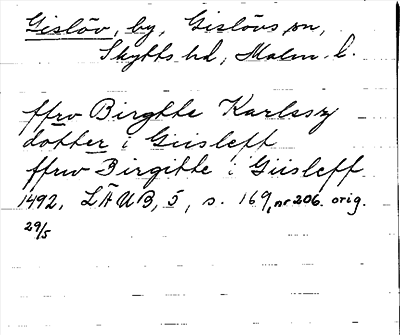 Gislöv, by, Gislövs sn,
Skytts hd, Malm. l.
ffrv Birgtte Karlssz
dötter i Giisleff
ffrw Birgitte i Giisleff
1492, LÄUB, 5, s. 169, nr 206. orig.
29/5